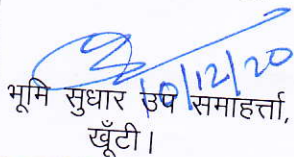 10/12/20
भूमि सुधार उप समाहर्त्ता,
खूँटी।